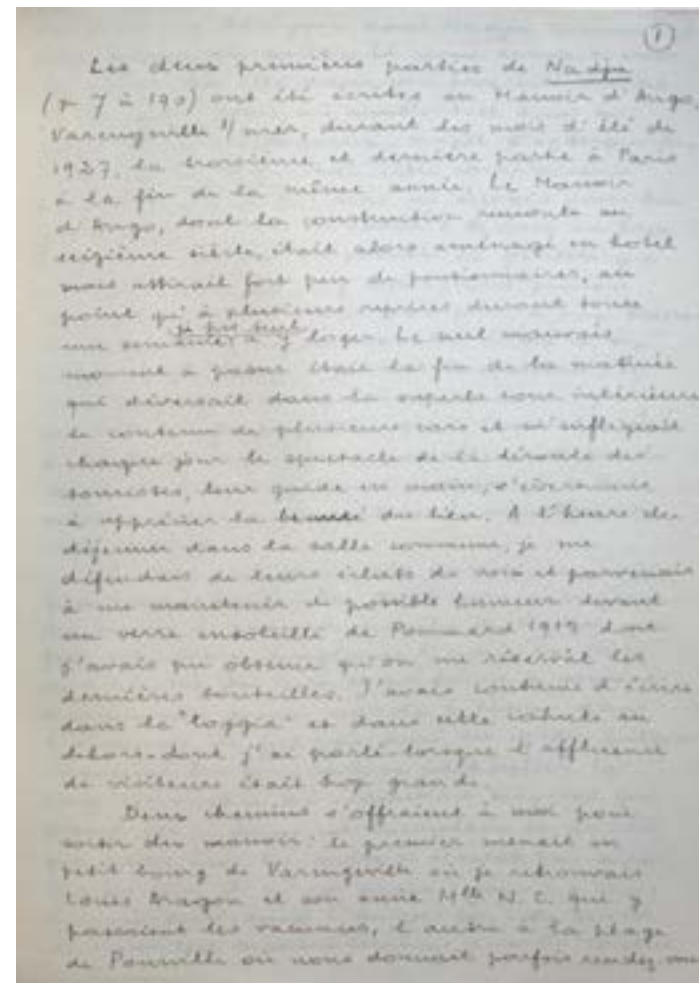 ①
Les deux premières parties de Nadja
(p 7 à 190) ont été écrites au Manoir d'Ango,
Varengeville s/ mer, durant les mois d'été de
1927, la troisième et dernière partie à Paris
à la fin de la même année. Le Manoir
d'Ango, dont la construction remonte au
seizième siècle, était alors aménagé en hôtel
mais attirait fort peu de pensionnaires, au
point qu'à plusieurs reprises, durant toute
une semaine je fus seul à y loger. Le seul mauvais
moment à passer était la fin de la matinée
qui déversait dans la superbe cour intérieure
le contenu de plusieurs cars et m'infligeait
chaque jour le spectacle de la déroute des
touristes, leur guide en main, s'évertuant
à apprécier la beauté du lieu. A l'heure du
déjeuner dans la salle commune, je me
défendais de leurs éclats de voix et parvenais
à me maintenir de possible humeur devant
un verre ensoleillé de Pommard 1919 dont
j'avais pu obtenir qu'on me réservât les
dernières bouteilles. J'avais coutume d'écrire
dans la "loggia" et dans cette cahute au
dehors dont j'ai parlé lorsque l'affluence
de visiteurs était trop grande.
Deux chemins s'offraient à moi pour
sortir du manoir: le premier menait au
petit bourg de Varengeville où je retrouvais
Louis Aragon et son amie Mlle N. C. qui y
passaient les vacances, l'autre à la plage
de Pourville où nous donnait parfois rendez-vous